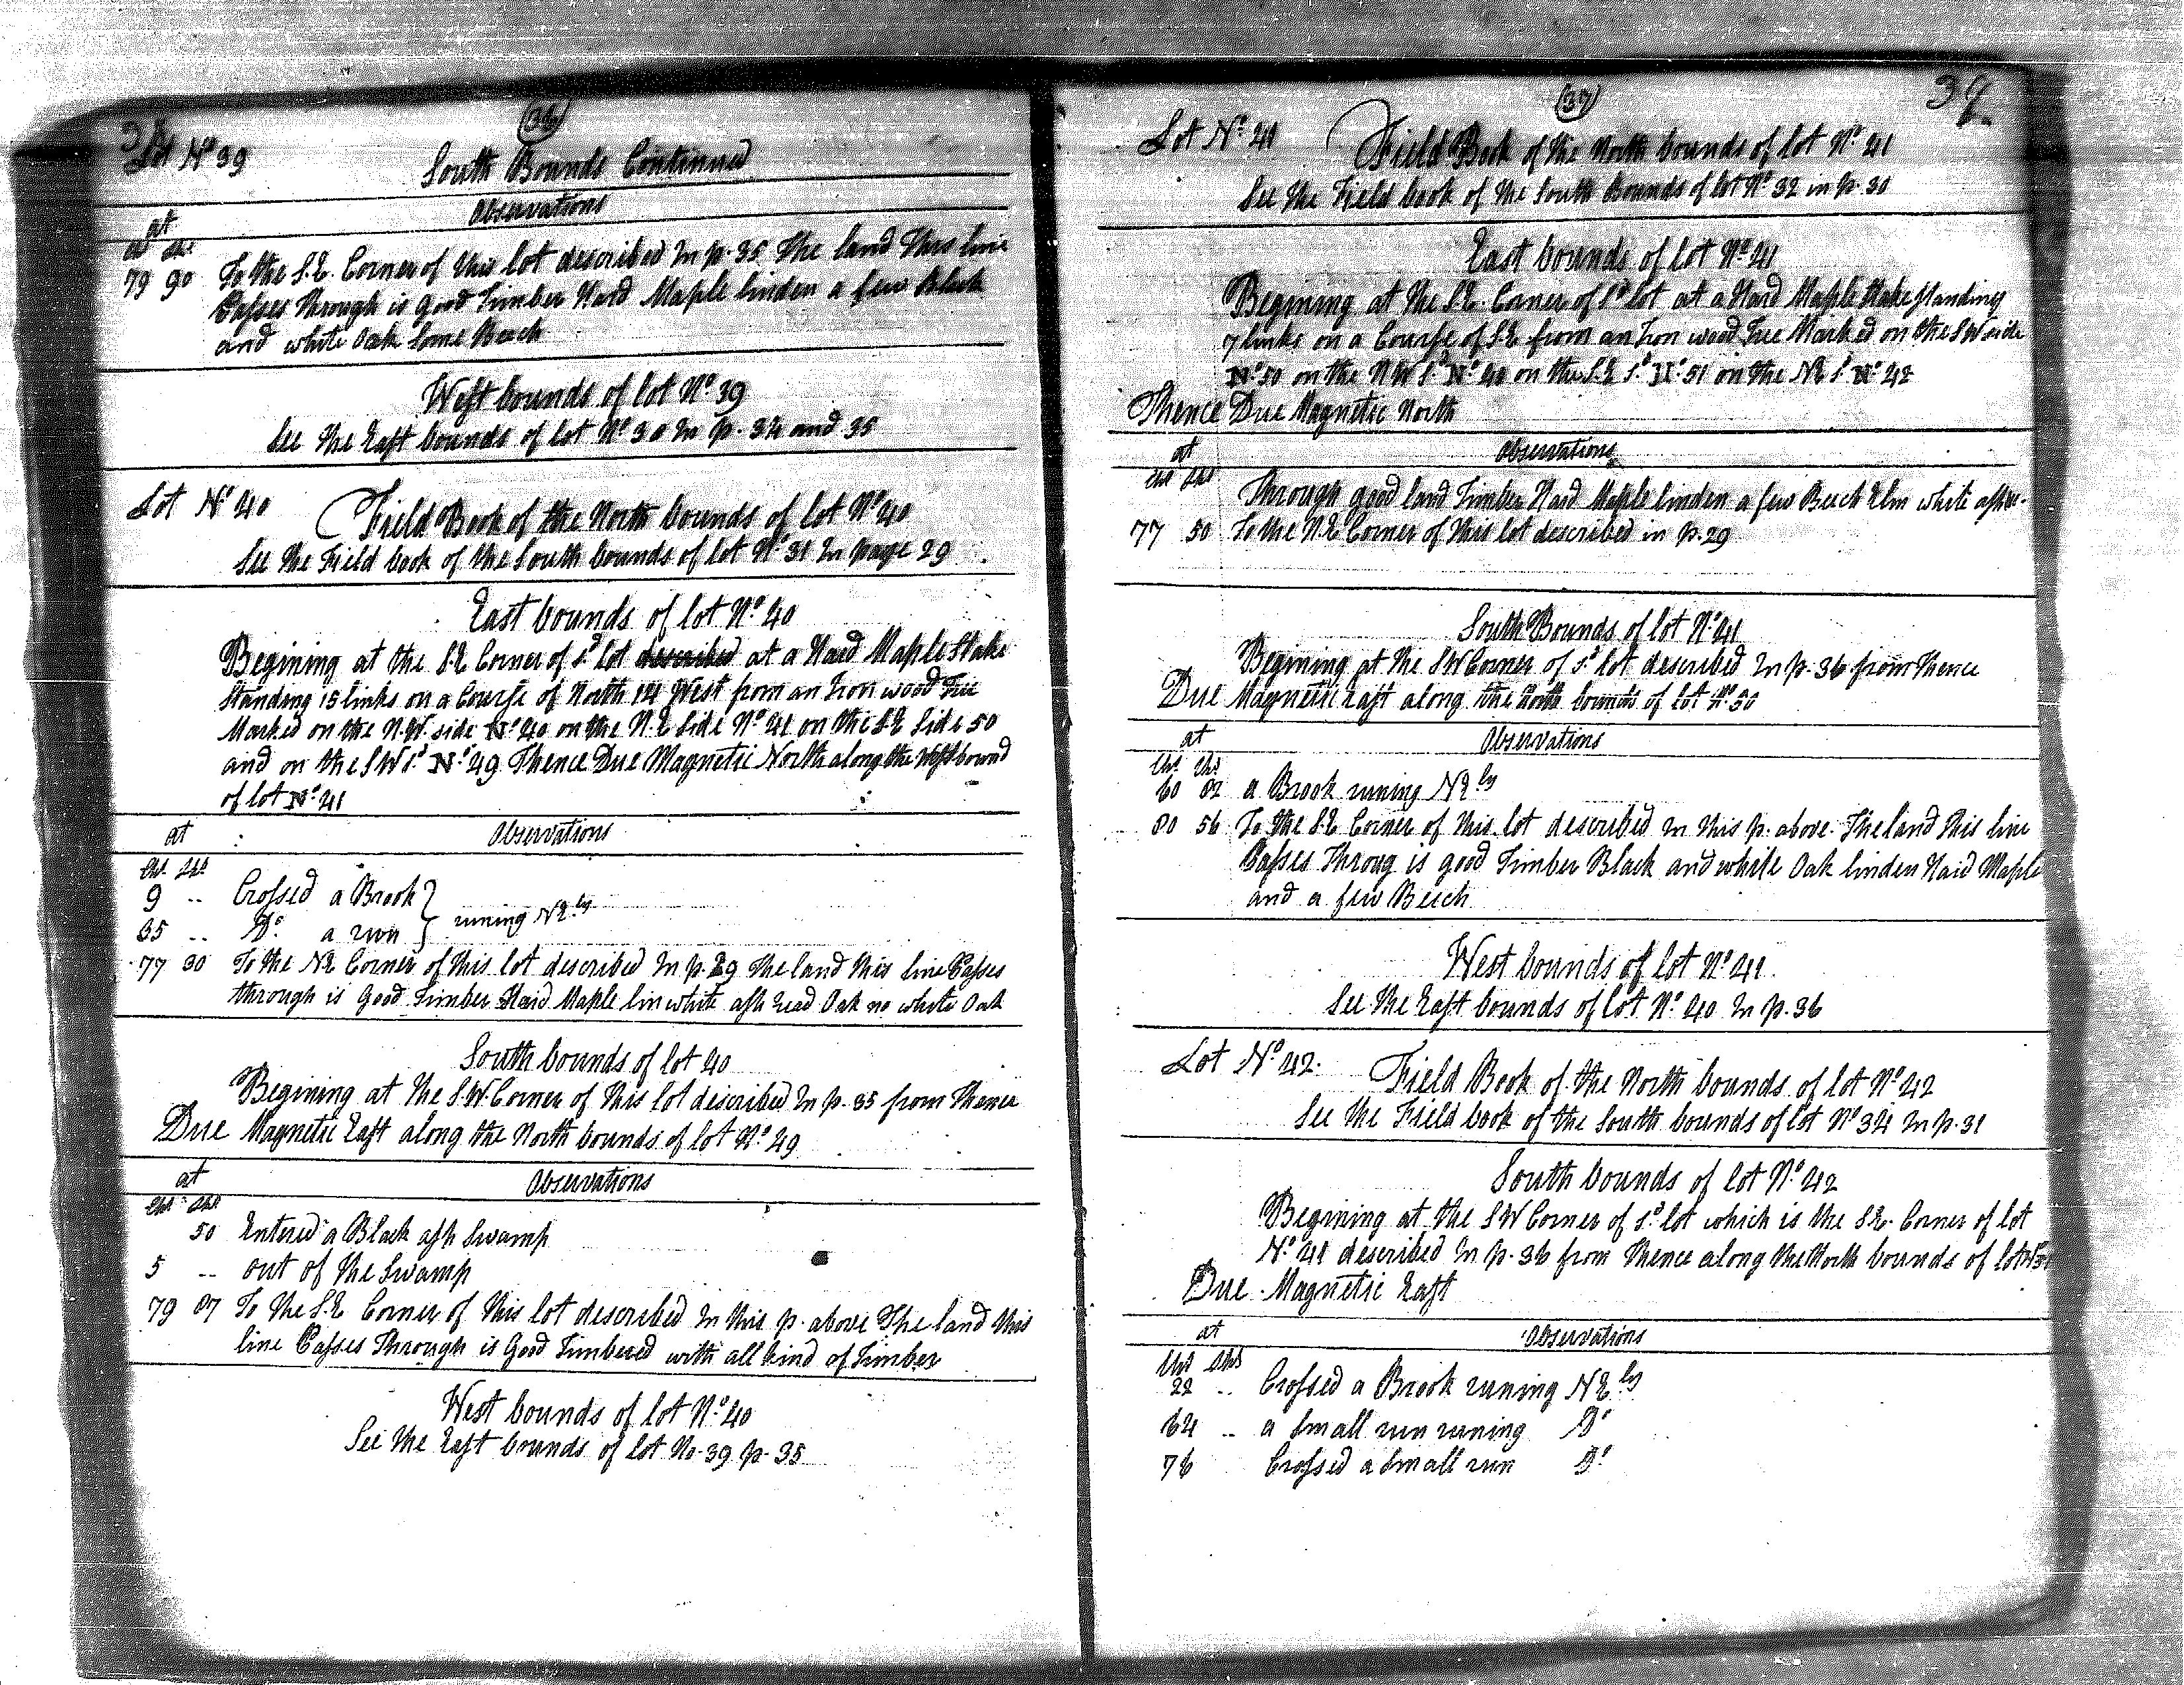 (36)
Lot No 39
South Bounds Continued
Observations
at
Chs Lks
79 90 To the S.E. Corner of this lot described In p. 35 The land this line
Passes Through is good Timber Hard Maple linden a few Black
and white Oak Some Beech
West bounds of lot No 39
See the East bounds of lot No 38 In p. 34 and 35
Lot No 40 Field Book of the North bounds of lot No 40
See the Field book of the South bounds of lot No 31 In page 29
East bounds of lot No 40
Begining at the S.E Corner of sd lot described at a Hard Maple Stake
Standing 15 links on a Course of North 14 West from an Iron wood Tree
Marked on the N.W. side No 40 on the N.E Side No 41 on the S.E Side 50
and on the SW sd No 49 Thence Due Magnetic North along the West bound
of lot No 41
at Observations
Chs Lks
9 .. Crossed a Brook
runing NE ly
35 .. Do a run
77 30 To the NE Corner of this lot described In p. 29 The land this line Passes
through is Good Timber Hard Maple lin white ash read Oak no white Oak
South bounds of lot 40
Begining at the S.W. Corner of this lot described In p. 35 from Thence
Due Magnetic East along the North bounds of lot No 49
at Observations
Chs Lks
50 Entered a Black ash Swamp
5 .. out of the Swamp
79 87 To the S.E Corner of this lot described In this p. above The land this
line Passes Through is Good Timbered with all kind of Timber
West bounds of lot No 40
See the East bounds of lot No. 39 p. 35
(37)
Lot No 41 Field Book of the North bounds of lot No 41
See the Field book of the South Bounds of lot No 32 in p. 30
East bounds of lot No 41
Begining at the S.E. Corner of sd lot at a Hard Maple Stake standing
7 links on a Course of S.E from an Iron wood Tree Marked on the SW side
No 50 on the NW Sd No 40 on the S.E Sd No 51 on the NE Sd No 42
Thence Due Magnetic North
at Observations
Chs Lks
Through good land Timber Hard Maple linden a few Beech Elm white ash
77 50 To the N.E Corner of this lot described in p. 29
South Bounds of lot No 41
Begining at the SW Corner of sd lot described In p. 36 from Thence
Due Magnetic East along the North bounds of lot No 50
at Observations
Chs Lks
60 82 a Brook runing NE ly
80 56 To the S.E Corner of this lot described In this p. above. The land this line
Passes Throug is good Timber Black and white Oak linden Hard Maple
and a few Beech
West bounds of lot No 41
See the East bounds of lot No 40 In p. 36
Lot No 42. Field Book of the North bounds of lot No 42
See the Field book of the South bounds of lot No 34 In p. 31
South bounds of lot No 42
Begining at the SW Corner of sd lot which is the S.E. Corner of lot
No 41 described In p. 36 from Thence along the North bounds of lot
Due Magnetic East
at Observations
Chs Lks
22 .. Crossed a Brook runing NE ly
64 .. a Small run runing Do
76 Crossed a Small run Do